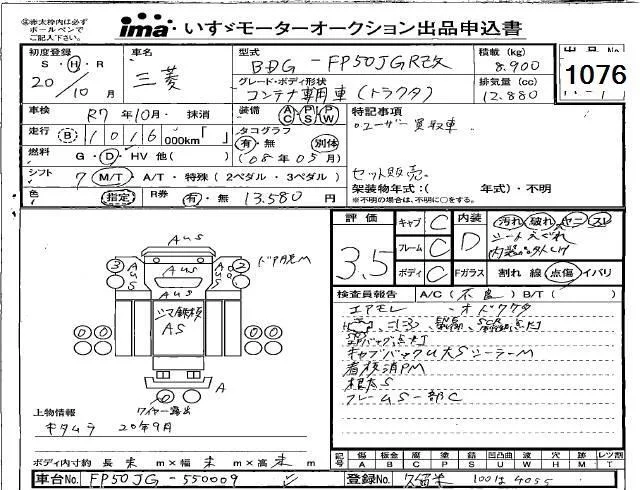 ㊟赤太枠内は必ず
ボールペンで
ご記入下さい。
ima いすゞモーターオークション出品申込書
初度登録
S・H・R
20/10月
車名
三菱
型式
BDG-FP50JGR改
積載(kg)
8.900
出品No
1076
グレード・ボディ形状
コンテナ専用車(トラクタ)
排気量(cc)
12.880
車検
R7年10月・抹消
装備
AC PS PW
特記事項
ユーザー買取車
走行
B 1016 000km「 」
タコグラフ
有・無 別体
(08年05月)
燃料
G・D・HV 他( )
シフト
7 M/T・A/T・特殊(2ペダル・3ペダル)
セット販売
架装物年式:( 年式)・不明
※不明の場合は、不明に○をする。
色
指定
R券
有・無 13.580円
評価
3.5
キャブ C
フレーム C
ボディ C
内装
D
汚れ 破れ ヤニ スレ
シートえぐれ
Fガラス
割れ 線 点傷 イバリ
検査員報告 A/C(不良)B/T( )
エアモレ
キャブバックU大Sシーラーm
看板消PM
根太S
フレームS一部C
AUS
AUS
AUS
3
2
シマ鉄板
AS
A
ワイヤー露出
上物情報
キタムラ 20年9月
ボディ内寸約 長 未 m×幅 未 m×高 未 m
記号 傷A 板金B 腐C 塗P 錆S 凹凸曲U 波W 穴H 跡M レツ割T
車台No. FP50JG-550009
登録No. 久留米 100は4055